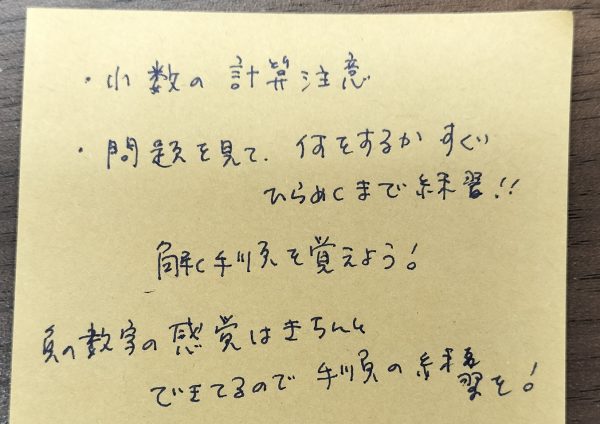 ・小数の計算注意
・問題を見て、何をするかすぐ
ひらめくまで練習!!
解く手順を覚えよう!
負の数字の感覚はきちんと
できてるので手順の練習を!